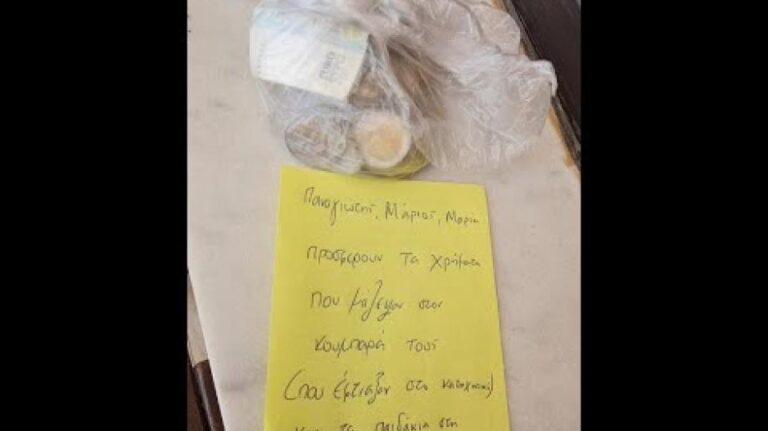 Παναγιώτης, Μάριος, Μαρία
προσφέρουν τα χρήματα
που μάζεψαν στον
κουμπαρά τους
(που έφτιαξαν στο κατηχητικό)
για τα παιδάκια στη